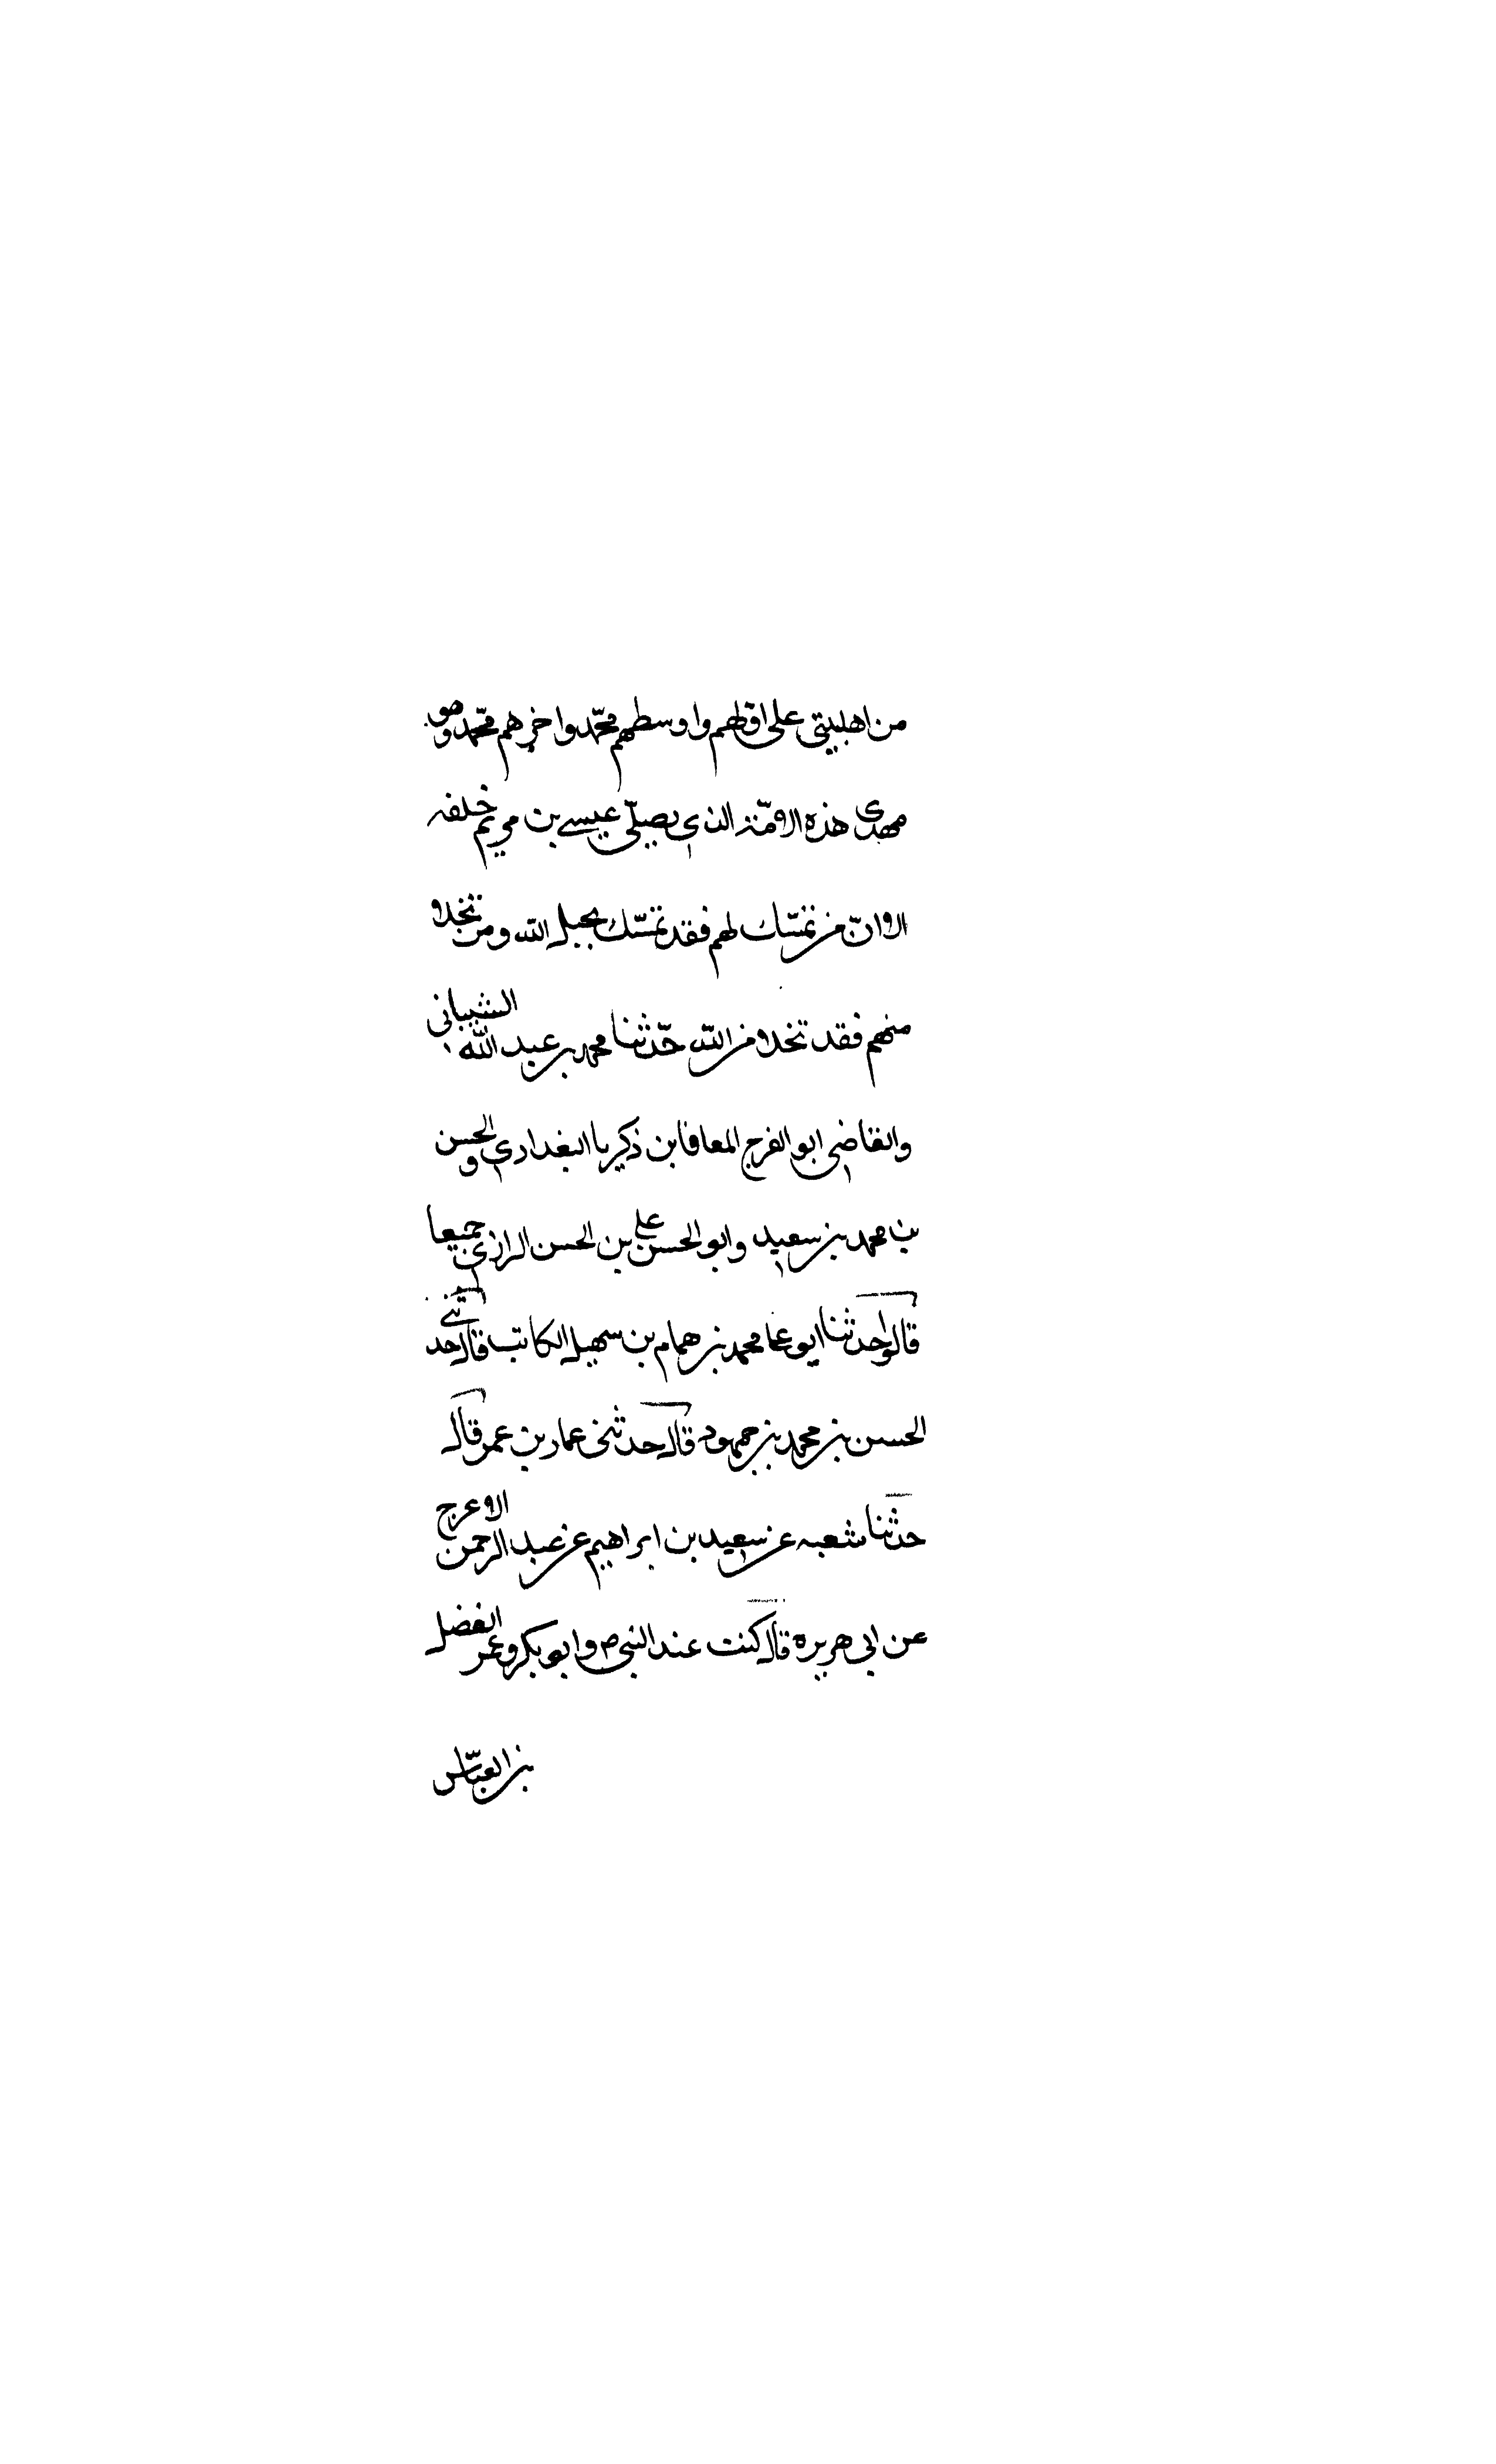 من اهلبيتي علي اولهم واوسطهم محمّد واخرهم محمّد وهو
مهدى هذه الامّة الذي يصلّي عيسى بن مريم خلفه
الا انّ من تمسّك لهم فقد تمسّك بحبل الله ومن تخلا
منهم فقد تخلا من الله حدّثنا محمد بن عبد الله الشيباني
والقاضي ابو الفرج المعافا بن ذكريا البغدادي والحسن
بن محمد بن سعيد وابو الحسن علي بن الحسن الرازي جميعا
قالوا حدثنا ابو على محمد بن همام بن سهيل الكاتب قال حدثنى
الحسن بن محمد بن جمهود قال حدثنى عمار بن عمر قال
حدثنا شعبه عن سعيد بن ابراهيم عن عبد الرحمن الاعرج
عن ابي هريره قال كنت عند النبي ص وابو بكر وعمر الفضل
بن العبّاس